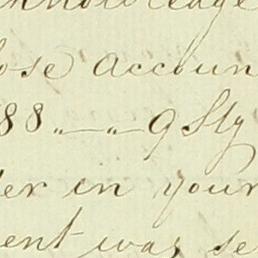 knowledge
ose Accoun
88 „ — „ — 9 Stg
er in your
ent was se